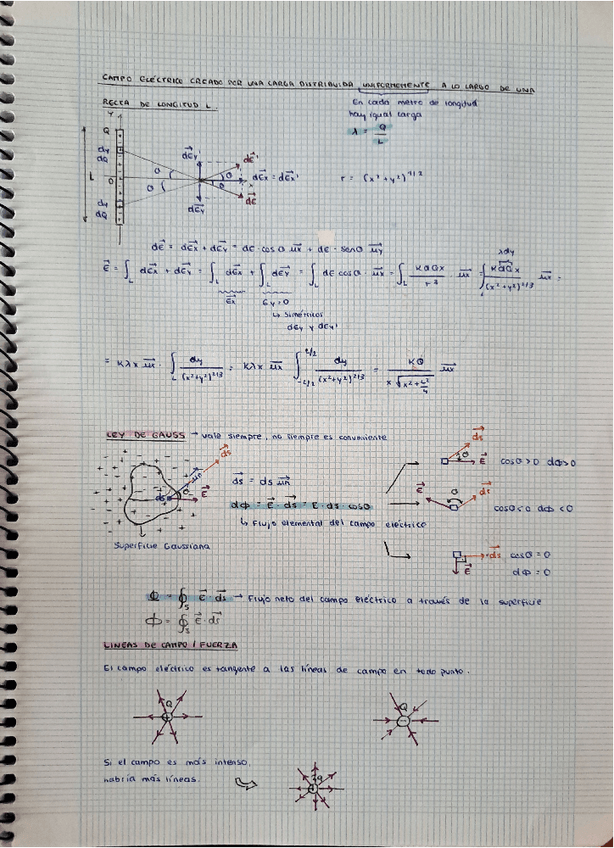 CAMPO ELÉCTRICO CREADO POR UNA CARGA DISTRIBUIDA UNIFORMEMENTE A LO LARGO DE UNA
RECTA DE LONGITUD L.
En cada metro de longitud
hay igual carga
λ = Q / L
r = (x² + y²)^1/2
Y
Q
dy
dQ
L
O
dy
dQ
θ
θ
dEy'
dE'
θ
θ
dEx = dEx'
x
dE
dEy
dE = dEx + dEy = dE · cosθ ux + dE · senθ uy
λdy
E = ∫L dEx + dEy = ∫L dEx + ∫L dEy = ∫L dE cosθ ux = ∫L KdQx / r³ ux = ∫L KdQx / (x²+y²)^2/3 ux =
Ex
Ey = 0
↳ Simétricos
dEy y dEy'
= Kλx ux · ∫L dy / (x²+y²)^2/3 = Kλx ux ∫-L/2 L/2 dy / (x²+y²)^2/3 = KQ / x√(x² + L²/4) ux
LEY DE GAUSS → vale siempre, no siempre es conveniente
ds
un
θ
ds
E
Superficie Gaussiana
ds = ds un
dΦ = E · ds = E · ds cosθ
↳ Flujo elemental del campo eléctrico
ds
θ
E
cosθ > 0 dΦ > 0
E
θ
ds
cosθ < 0 dΦ < 0
ds
E
cosθ = 0
dΦ = 0
Φ = ∮S E · ds → Flujo neto del campo eléctrico a través de la superficie
Φ = ∮S E · ds
LINEAS DE CAMPO / FUERZA
El campo eléctrico es tangente a las líneas de campo en todo punto.
Q
+
Q
-
Si el campo es más intenso,
habría más líneas.
+